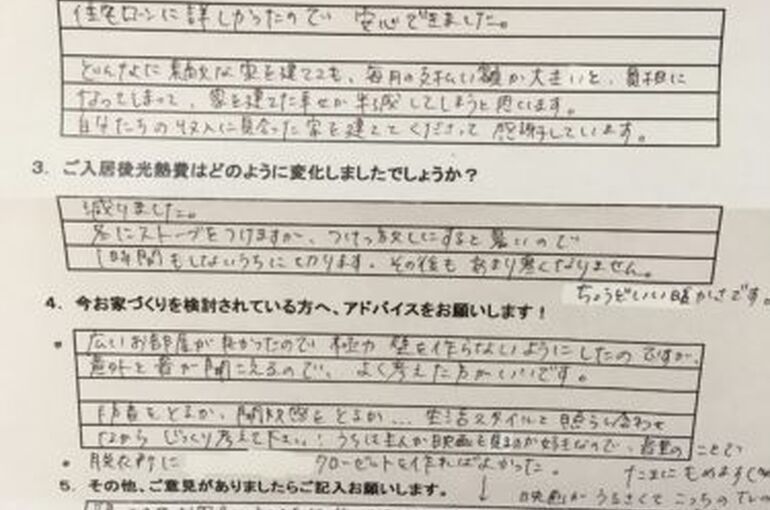 住宅ローンに詳しかったので 安心できました。
どんなに素敵な家を建てても、毎月の支払い額が大きいと、負担に
なってしまって、家を建てた幸せが半減してしまうと思います。
自分たちの収入に見合った家を建ててくださって感謝しています。
3. ご入居後光熱費はどのように変化しましたでしょうか?
減りました。
冬にストーブをつけますが、つけっ放しにすると暑いので
1時間もしないうちに切ります。その後もあまり寒くなりません。
ちょうどいい暖かさです。
4. 今お家づくりを検討されている方へ、アドバイスをお願いします!
• 広いお部屋が良かったので 極力 壁を作らないようにしたのですが、
意外と音が聞こえるので、よく考えた方がいいです。
防音をとるか、開放感をとるか... 生活スタイルと照らし合わせ
ながら じっくり考えて下さい! うちは主人が映画を見るのが好きなので、音量のことで
たまにもめます
• 脱衣所に クローゼットを作ればよかった。
↓
映画がうるさくてこっちのテレ
5. その他、ご意見がありましたらご記入お願いします。